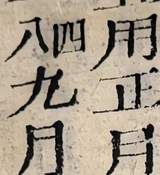 用正月
四八九月